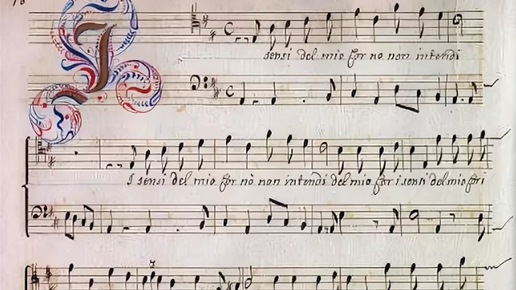 I sensi del mio Cor no non intendi
I sensi del mio Cor nò non intendi del mio Cor i sensi del mio Cor i